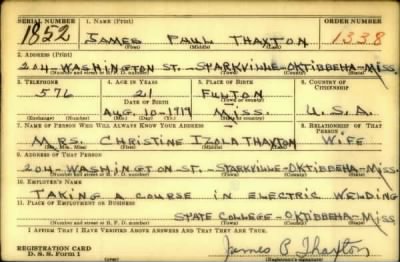 SERIAL NUMBER 1. NAME (Print) ORDER NUMBER
1852 JAMES PAUL THAXTON 1338
(First) (Middle) (Last)
2. ADDRESS (Print)
204 WASHINGTON ST. - STARKVILLE - OKTIBBEHA - MISS.
(Number and street or R. F. D. number) (Town) (County) (State)
3. TELEPHONE 4. AGE IN YEARS 5. PLACE OF BIRTH 6. COUNTRY OF CITIZENSHIP
576 21 FULTON
DATE OF BIRTH (Town or county)
AUG. 10, 1919 MISS. U.S.A.
(Exchange) (Number) (Mo.) (Day) (Yr.) (State or country)
7. NAME OF PERSON WHO WILL ALWAYS KNOW YOUR ADDRESS 8. RELATIONSHIP OF THAT PERSON
MRS. CHRISTINE IZOLA THAXTON WIFE
(Mr., Mrs., Miss) (First) (Middle) (Last)
9. ADDRESS OF THAT PERSON
204 WASHINGTON ST. - STARKVILLE - OKTIBBEHA - MISS.
(Number and street or R. F. D. number) (Town) (County) (State)
10. EMPLOYER'S NAME
TAKING A COURSE IN ELECTRIC WELDING
11. PLACE OF EMPLOYMENT OR BUSINESS
STATE COLLEGE - OKTIBBEHA - MISS
(Number and street or R. F. D. number) (Town) (County) (State)
I AFFIRM THAT I HAVE VERIFIED ABOVE ANSWERS AND THAT THEY ARE TRUE.
REGISTRATION CARD
D. S. S. Form 1 James P. Thaxton
(Registrant's signature)